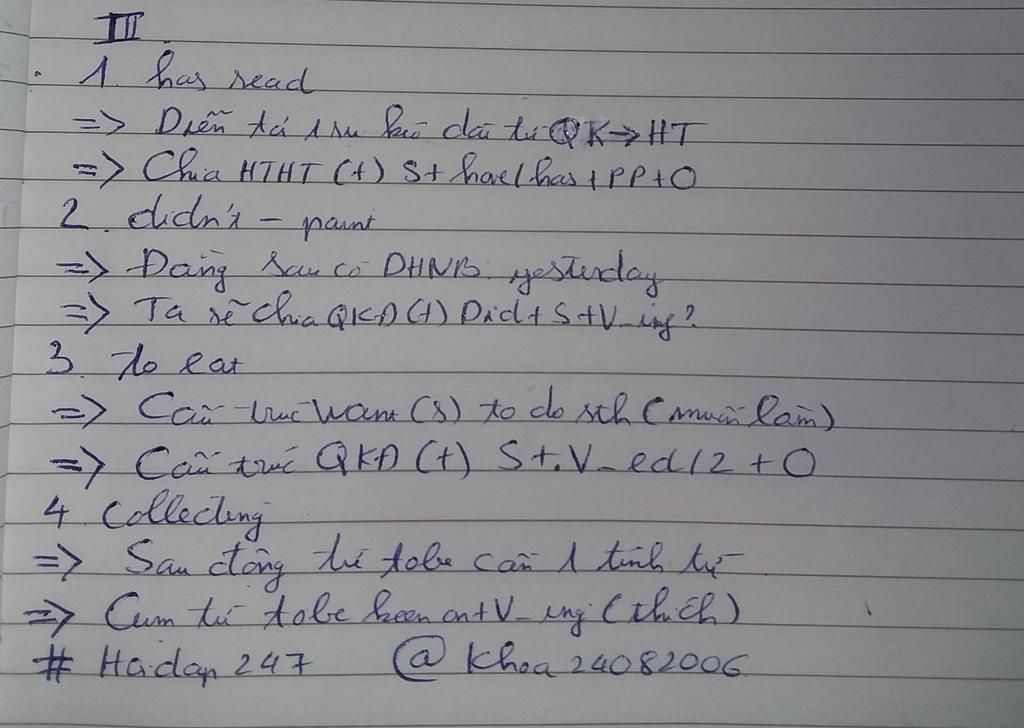 III
1. has read
=> Diễn tả 1 sự kiện dài từ QK→HT
=> Chia HTHT (+) S+ have/has+PP+O
2. didn't - paint
=> Đằng sau có DHNB yesterday
=> Ta sẽ chia QKĐ(+) Did+ S+V_ing?
3. to eat
=> Cấu trúc Want (s) to do sth (muốn làm)
=> Cấu trúc QKĐ (+) S+.V_ed/2 + O
4 Collecting
=> Sau động từ tobe cần 1 tính từ
=> Cụm từ tobe keen on+V_ing (thích)
# Hoidap 247 @ Khoa 24082006